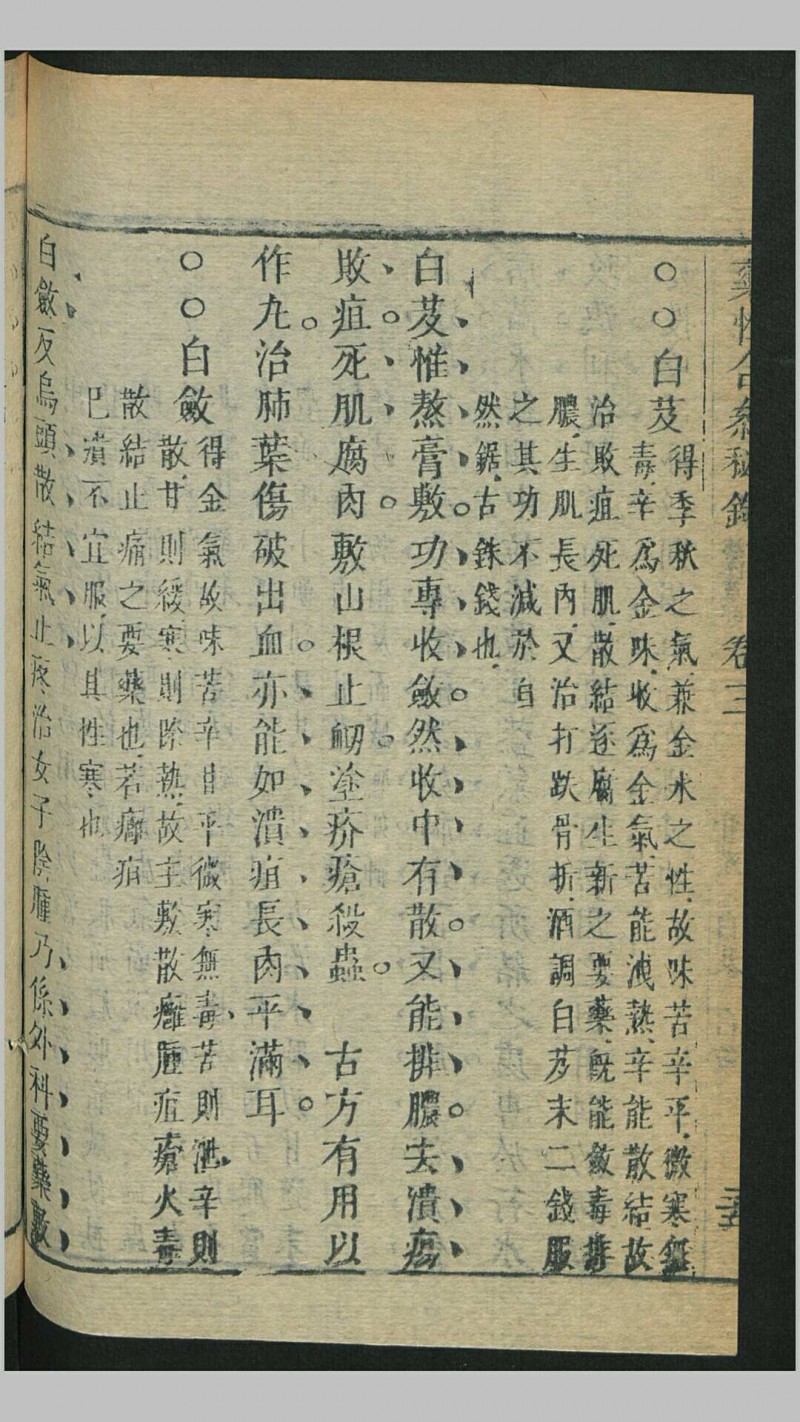 藥性合參秘錄 卷三
○○白芨 得季秋之氣兼金水之性故味苦辛平微寒無
毒辛爲金味收爲金氣苦能洩熱辛能散結故
治敗疽死肌散結逐腐生新之要藥既能斂毒排
膿生肌長肉又治打跌骨折酒調白芨末二錢服
之其功不減於自
然銅古銖錢也
白芨惟熬膏敷功專收斂然收中有散又能排膿去潰瘍
敗疽死肌腐肉敷山根止衂塗疥瘡殺蟲 古方有用以
作丸治肺葉傷破出血亦能如潰疽長肉平滿耳
○○白斂 得金氣故味苦辛甘平微寒無毒苦則泄辛則
散甘則緩寒則除熱故主敷散癰腫疽瘡火毒
散結止痛之要藥也若癰疽
已潰不宜服以其性寒也
白斂反烏頭散結氣止疼治女子陰腫乃係外科要藥敷